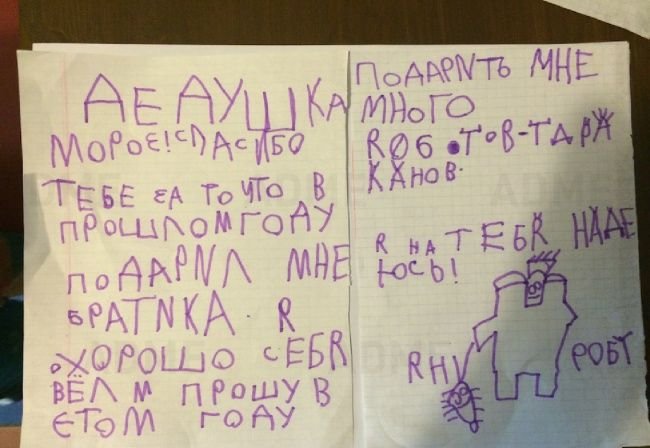 ДЕДУШКА
МОРОЗ! СПАСИБО
ТЕБЕ ЗА ТО ЧТО В
ПРОШЛОМ ГОДУ
ПОДАРИЛ МНЕ
БРАТИКА. Я
ХОРОШО СЕБЯ
ВЁЛ И ПРОШУ В
ЕТОМ ГОДУ
ПОДАРИТЬ МНЕ
МНОГО
РОБ•ТОВ-ТАРА
КАНОВ.
Я НА ТЕБЯ НАДЕ
ЮСЬ!
ЯНУ РОБТ